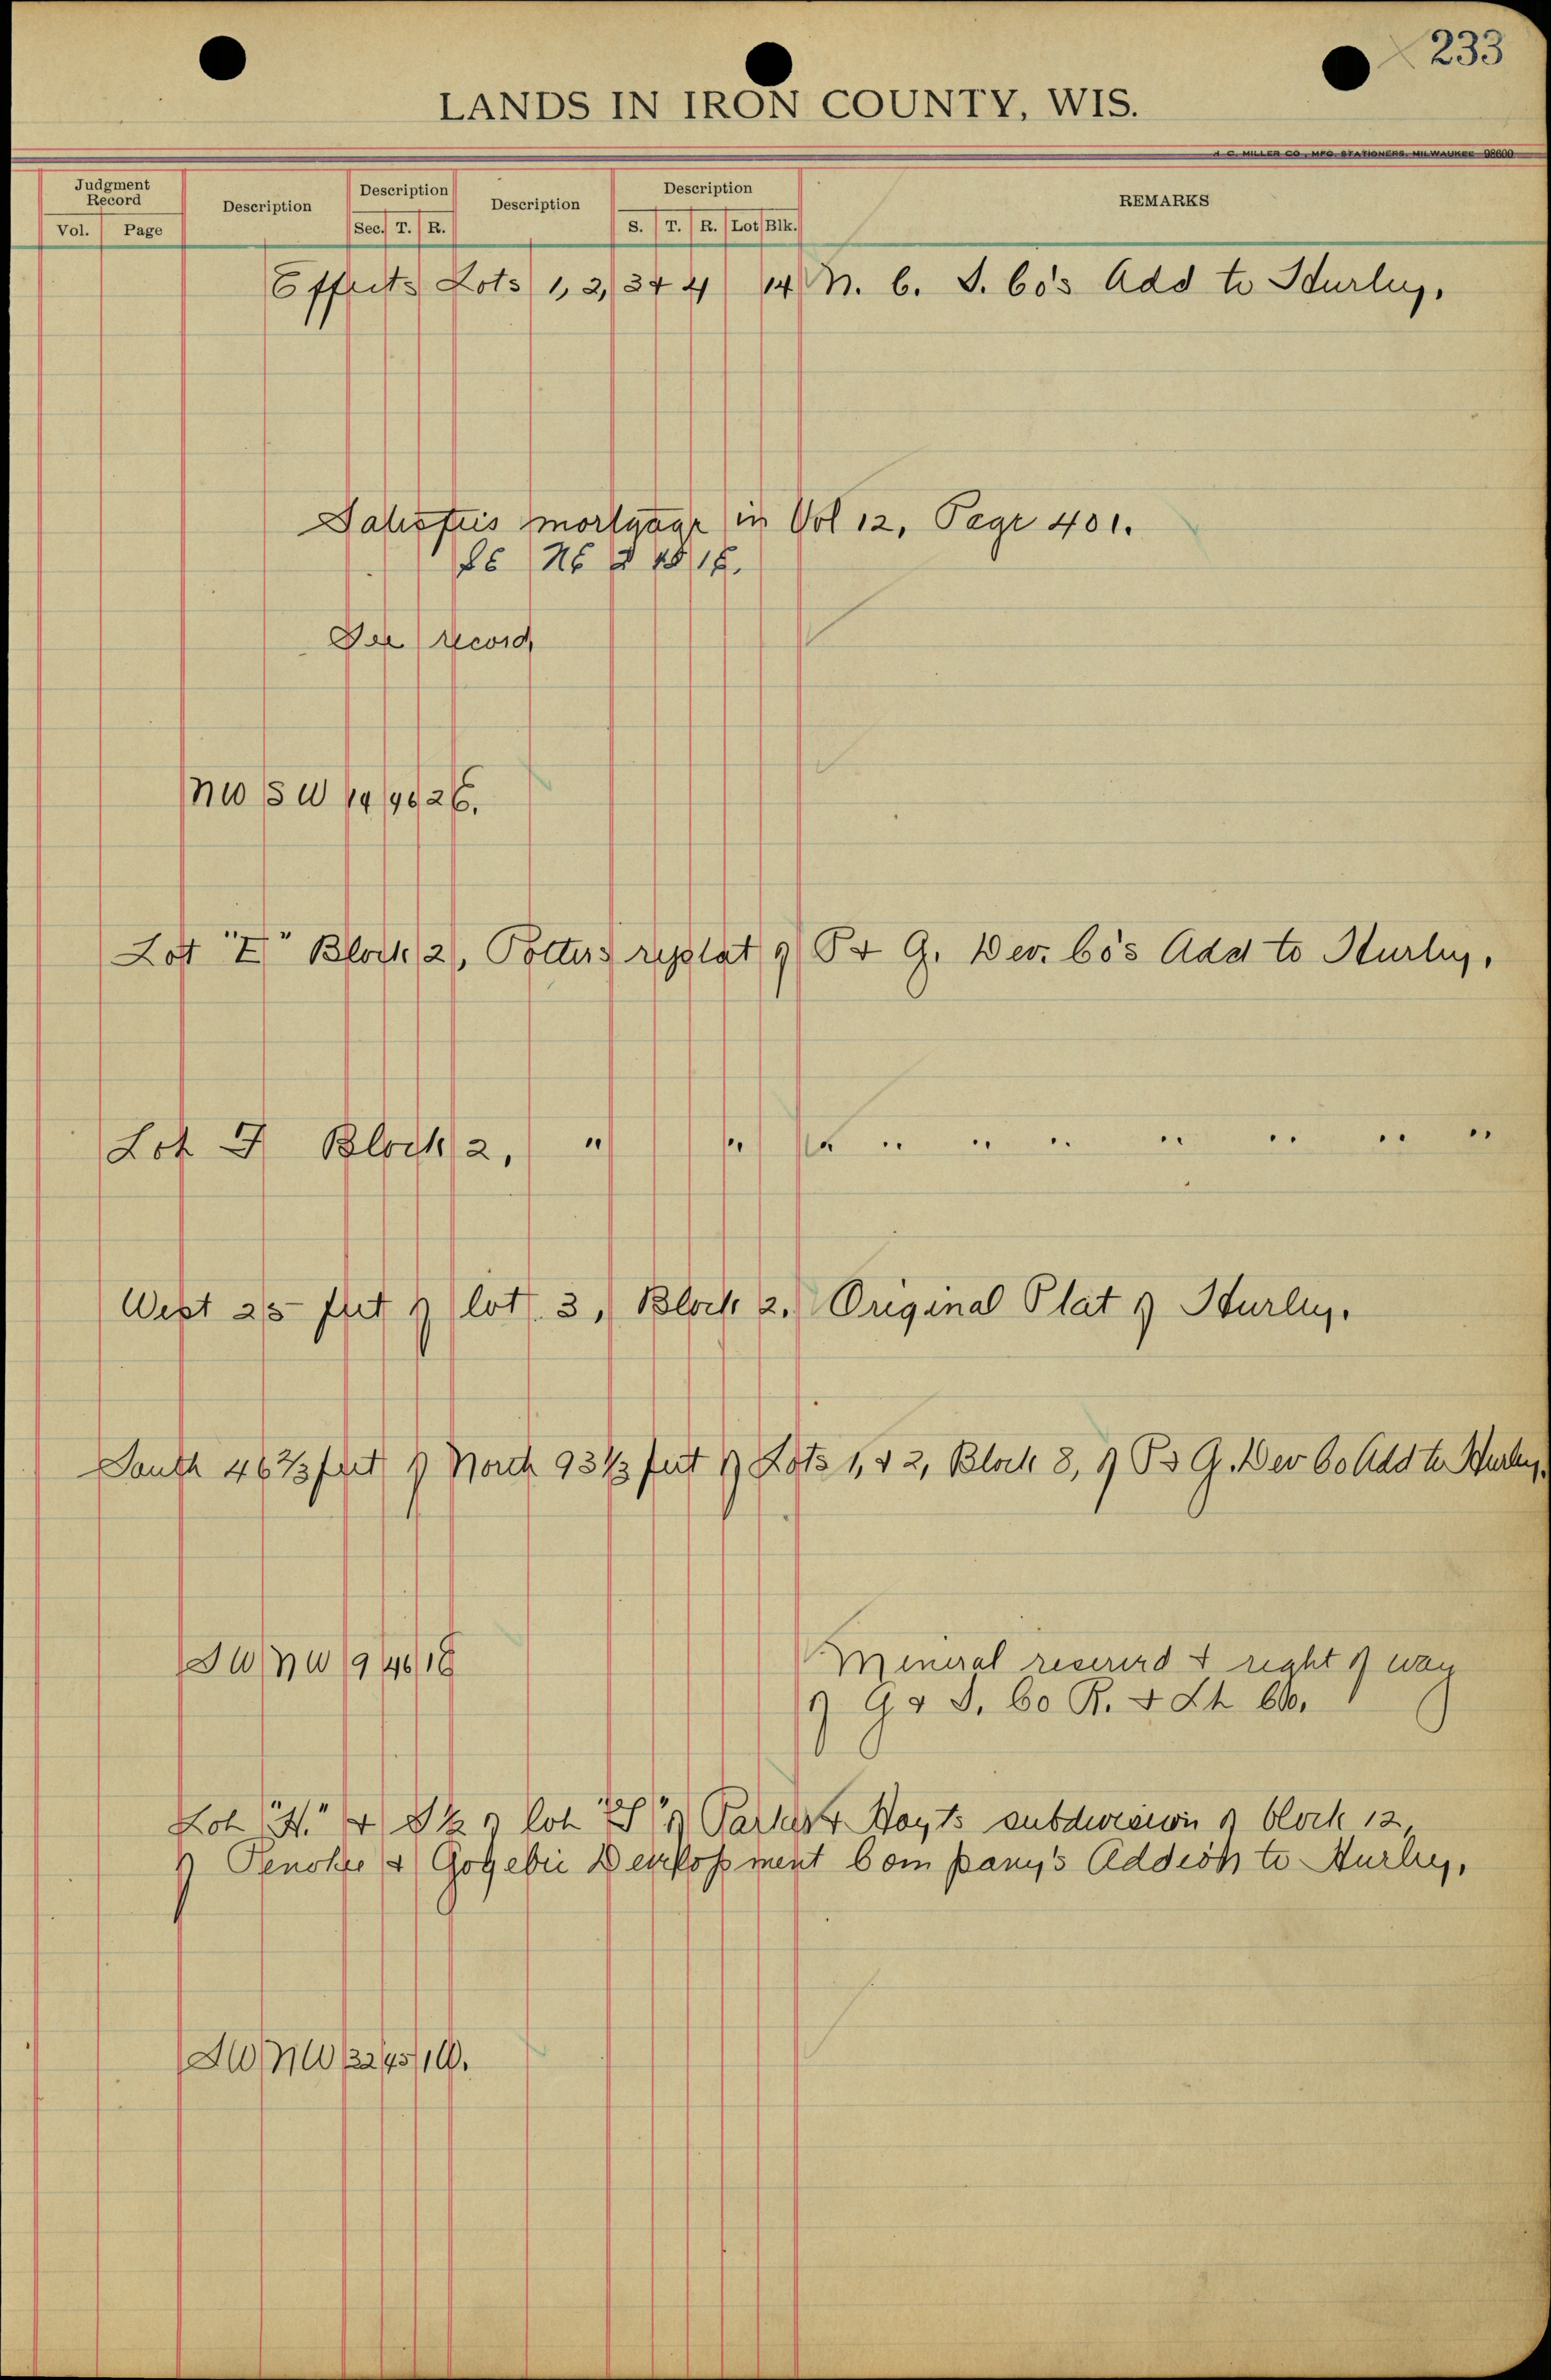 233
LANDS IN IRON COUNTY, WIS.
H. C. MILLER CO., MFG. STATIONERS, MILWAUKEE 98600
Judgment Record Description Description Description Description REMARKS
Vol. Page Sec. T. R. S. T. R. Lot Blk.
Effects Lots 1, 2, 3 + 4 14 N. C. I. Co's Add to Hurley.
Satisfies mortgage in Vol 12, Page 401.
See record
NW SW 14 46 2E.
Lot "E" Block 2, Potters replat of P + G. Dev. Co's Add to Hurley.
Lot F Block 2, " " " " " " " " " "
West 25 feet of lot 3, Block 2. Original Plat of Hurley.
South 46 2/3 feet of North 93 1/3 feet of Lots 1, + 2, Block 8, of P + G. Dev Co Add to Hurley.
SW NW 9 46 1E
Mineral reserved + right of way
of G + S. Co R. + Lt Co.
Lot "H." + S½ of lot of Parker + Hoyts subdivision of block 12,
of Penokee + Gogebic Development Company's Addion to Hurley.
SW NW 32 45 1E.